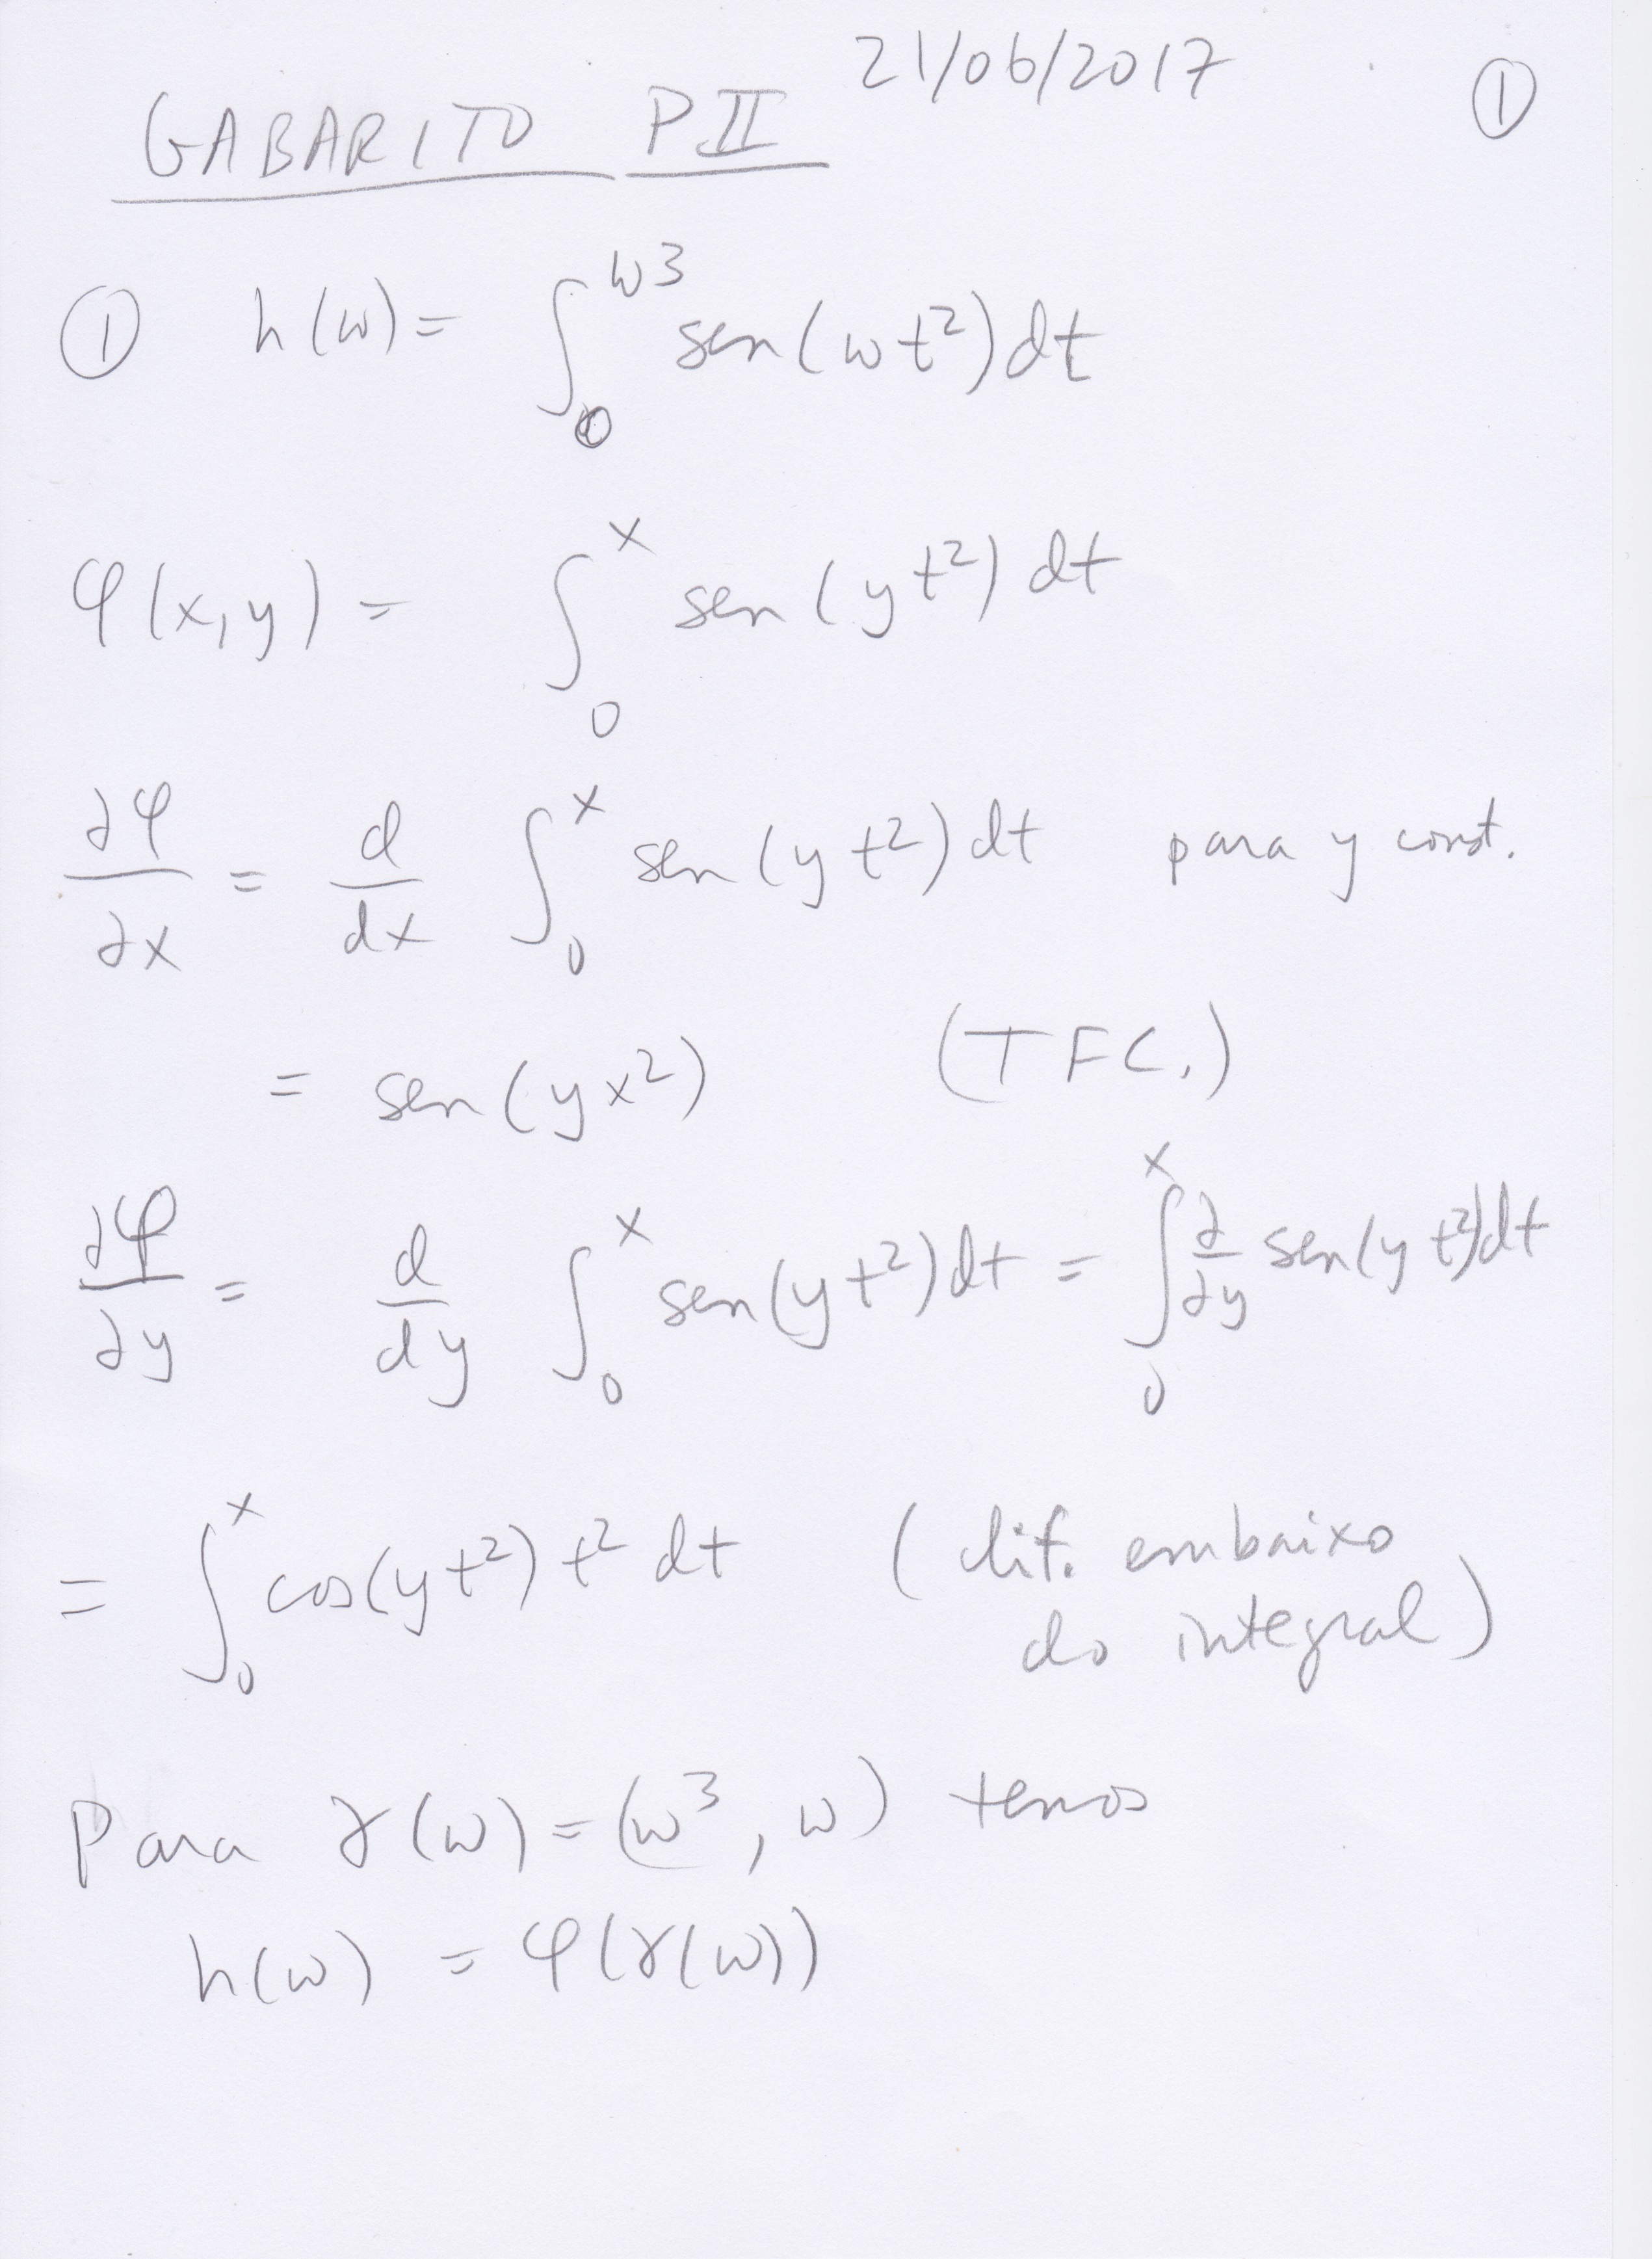 21/06/2017 ①
GABARITO PII
① h(w) = ∫₀^{w3} sen(wt²)dt
φ(x,y) = ∫₀^x sen(yt²) dt
∂φ/∂x = d/dx ∫₀^x sen(yt²)dt para y const.
= sen(yx²) (TFC.)
∂φ/∂y = d/dy ∫₀^x sen(yt²)dt = ∫₀^x ∂/∂y sen(yt²)dt
= ∫₀^x cos(yt²) t² dt (dif. embaixo
do integral)
Para γ(w) = (w³, w) temos
h(w) = φ(γ(w))